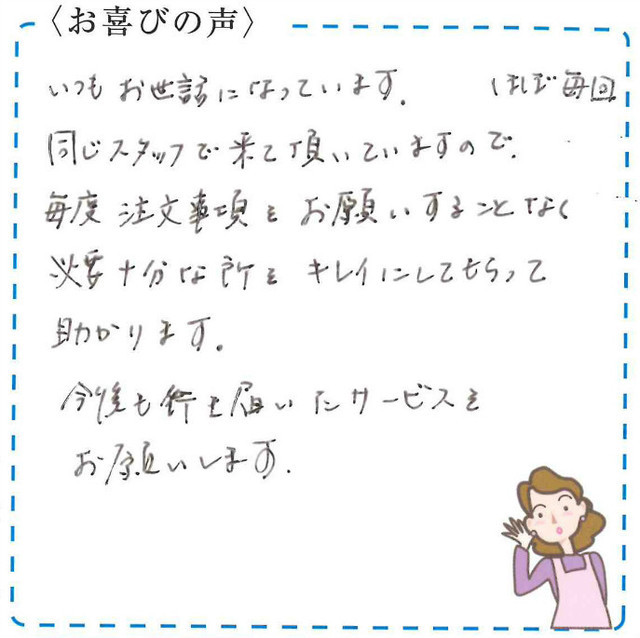 〈お喜びの声〉
いつもお世話になっています。 ほぼ毎回
同じスタッフで来て頂いていますので、
毎度注文事項をお願いすることなく
必要十分な所をキレイにしてもらって
助かります。
今後も行き届いたサービスを
お願いします。